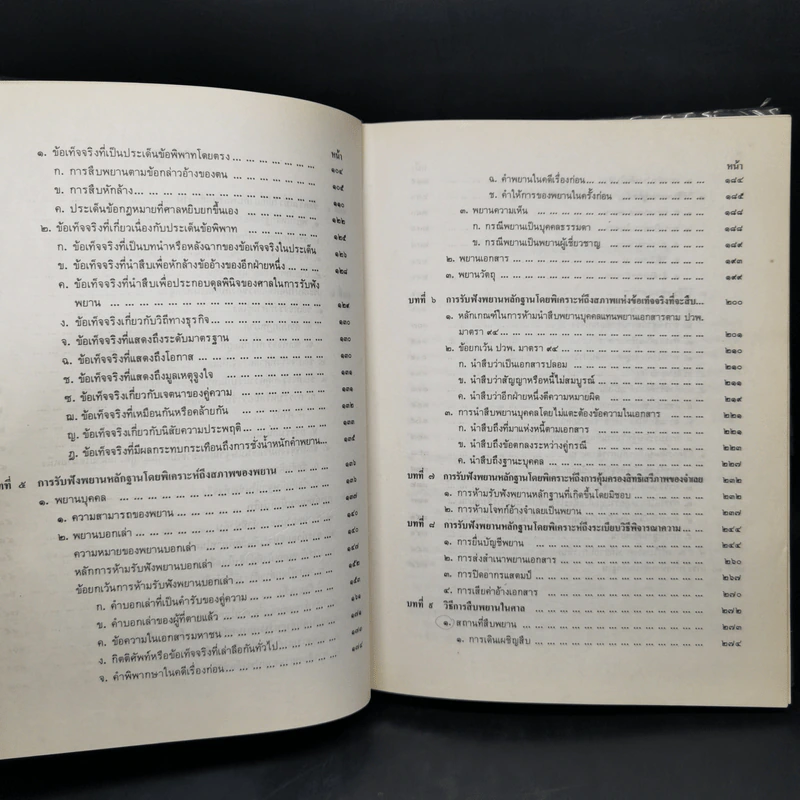 หน้า
๑. ข้อเท็จจริงที่เป็นประเด็นข้อพิพาทโดยตรง ... ... ... ... ... ... ๑๐๔
ก. การสืบพยานตามข้อกล่าวอ้างของตน ... ... ... ... ... ... ๑๐๔
ข. การสืบหักล้าง ... ... ... ... ... ... ... ... ๑๐๕
ค. ประเด็นข้อกฎหมายที่ศาลหยิบยกขึ้นเอง ... ... ... ... ... ๑๒๒
๒. ข้อเท็จจริงที่เกี่ยวเนื่องกับประเด็นข้อพิพาท ... ... ... ... ... ๑๒๕
ก. ข้อเท็จจริงที่เป็นบทนำหรือหลังฉากของข้อเท็จจริงในประเด็น ๑๒๖
ข. ข้อเท็จจริงที่นำสืบเพื่อหักล้างข้ออ้างของอีกฝ่ายหนึ่ง ... ... ๑๒๘
ค. ข้อเท็จจริงที่นำสืบเพื่อประกอบดุลพินิจของศาลในการรับฟัง
พยาน ... ... ... ... ... ... ... ... ๑๒๙
ง. ข้อเท็จจริงเกี่ยวกับวิถีทางธุรกิจ ... ... ... ... ... ๑๓๐
จ. ข้อเท็จจริงที่แสดงถึงระดับมาตรฐาน ... ... ... ... ... ๑๓๐
ฉ. ข้อเท็จจริงที่แสดงถึงโอกาส ... ... ... ... ... ... ๑๓๐
ช. ข้อเท็จจริงที่แสดงถึงมูลเหตุจูงใจ ... ... ... ... ... ๑๓๑
ซ. ข้อเท็จจริงเกี่ยวกับเจตนาของคู่ความ ... ... ... ... ๑๓๑
ฌ. ข้อเท็จจริงที่เหมือนกันหรือคล้ายกัน ... ... ... ... ๑๓๒
ญ. ข้อเท็จจริงเกี่ยวกับนิสัยความประพฤติ ... ... ... ... ๑๓๔
ฎ. ข้อเท็จจริงที่มีผลกระทบกระเทือนถึงการชั่งน้ำหนักคำพยาน... ... ๑๓๕
ที่ ๕ การรับฟังพยานหลักฐานโดยพิเคราะห์ถึงสภาพของพยาน ... ... ... ๑๓๖
๑. พยานบุคคล ... ... ... ... ... ... ... ๑๓๖
๑. ความสามารถของพยาน ... ... ... ... ... ... ๑๓๗
๒. พยานบอกเล่า ... ... ... ... ... ... ... ๑๔๐
ความหมายของพยานบอกเล่า ... ... ... ... ... ๑๔๐
หลักการห้ามรับฟังพยานบอกเล่า ... ... ... ... ... ๑๕๐
ข้อยกเว้นการห้ามรับฟังพยานบอกเล่า ... ... ... ... ๑๕๒
ก. คำบอกเล่าที่เป็นคำรับของคู่ความ ... ... ... ... ๑๖๑
ข. คำบอกเล่าของผู้ที่ตายแล้ว ... ... ... ... ...
ค. ข้อความในเอกสารมหาชน ... ... ... ... ...
ง. กิตติศัพท์หรือข้อเท็จจริงที่เล่าลือกันทั่วไป ... ... ... ...
จ. คำพิพากษาในคดีเรื่องก่อน ... ... ... ... ...
หน้า
ฉ. คำพยานในคดีเรื่องก่อน ... ... ... ... ... ... ... ๑๘๔
ช. คำให้การของพยานในครั้งก่อน ... ... ... ... ... ๑๘๕
๓. พยานความเห็น ... ... ... ... ... ... ... ... ๑๘๘
ก. กรณีพยานเป็นบุคคลธรรมดา ... ... ... ... ... ๑๘๘
ข. กรณีพยานเป็นพยานผู้เชี่ยวชาญ ... ... ... ... ... ๑๘๙
๒. พยานเอกสาร ... ... ... ... ... ... ... ... ๑๙๓
๓. พยานวัตถุ ... ... ... ... ... ... ... ... ๑๙๙
บทที่ ๖ การรับฟังพยานหลักฐานโดยพิเคราะห์ถึงสภาพแห่งข้อเท็จจริงที่จะสืบ... ๒๐๐
๑. หลักเกณฑ์ในการห้ามนำสืบพยานบุคคลแทนพยานเอกสารตาม ปวพ.
มาตรา ๙๔ ... ... ... ... ... ... ... ... ๒๐๑
๒. ข้อยกเว้น ปวพ. มาตรา ๙๔ ... ... ... ... ... ... ๒๑๐
ก. นำสืบว่าเป็นเอกสารปลอม ... ... ... ... ... ๒๑๐
ข. นำสืบว่าสัญญาหรือหนี้ไม่สมบูรณ์ ... ... ... ... ๒๑๑
ค. นำสืบว่าอีกฝ่ายหนึ่งตีความหมายผิด ... ... ... ... ๒๑๙
๓. การนำสืบพยานบุคคลโดยไม่แตะต้องข้อความในเอกสาร ... ... ๒๒๑
ก. นำสืบถึงที่มาแห่งหนี้ตามเอกสาร ... ... ... ... ... ๒๒๑
ข. นำสืบถึงข้อตกลงระหว่างคู่กรณี ... ... ... ... ... ๒๒๓
ค. นำสืบถึงฐานะบุคคล ... ... ... ... ... ... ๒๒๗
บทที่ ๗ การรับฟังพยานหลักฐานโดยพิเคราะห์ถึงการคุ้มครองสิทธิเสรีภาพของจำเลย ๒๓๒
๑. การห้ามรับฟังพยานหลักฐานที่เกิดขึ้นโดยมิชอบ ... ... ... ๒๓๒
๒. การห้ามโจทก์อ้างจำเลยเป็นพยาน ... ... ... ... ... ๒๓๗
บทที่ ๘ การรับฟังพยานหลักฐานโดยพิเคราะห์ถึงระเบียบวิธีพิจารณาความ ... ... ๒๔๔
๑. การยื่นบัญชีพยาน ... ... ... ... ... ... ... ๒๔๔
๒. การส่งสำเนาพยานเอกสาร ... ... ... ... ... ... ๒๖๐
๓. การปิดอากรแสตมป์ ... ... ... ... ... ... ... ๒๖๗
๔. การเสียค่าอ้างเอกสาร ... ... ... ... ... ... ๒๗๐
บทที่ ๙ วิธีการสืบพยานในศาล ... ... ... ... ... ... ... ๒๗๒
๑. สถานที่สืบพยาน ... ... ... ... ... ... ... ๒๗๓
๑. การเดินเผชิญสืบ ... ... ... ... ... ... ... ๒๗๔